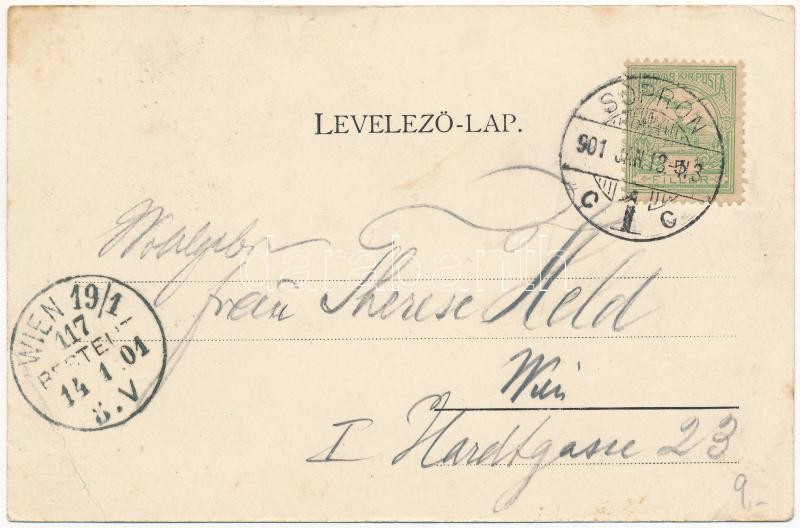 MAGYAR KIR. POSTA
FILLÉR
SOPRON
901 JAN 13
C 1 C
LEVELEZŐ-LAP.
Wohlgebor
Frau Therese Held
Wien
I Hardtgasse 23
WIEN 19/1
117
BESTELLT
14 1 01
8.V
darabanth
9.-